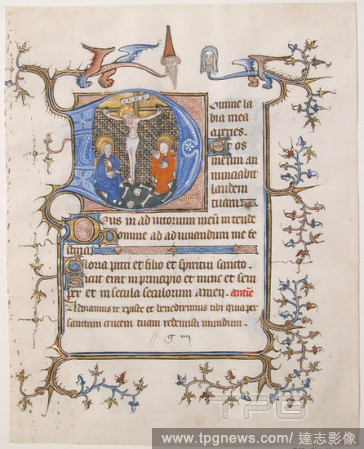 Domine la
bia mea
aperies.
Et os
meum an
nunciabit
laudem
tuam
Deus in adiutorium meum intende
Domine ad adiuvandum me fe
stina
Gloria patri et filio et spiritui sancto.
Sicut erat in principio et nunc et sem
per et in secula seculorum amen.
Adoramus te xpiste et benedicimus tibi quia per
sanctam crucem tuam redemisti mundum.
TPG
www.tpgnews.com/ 達志影像